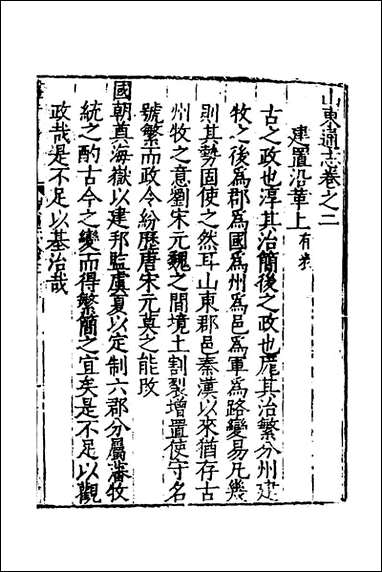 山東通志卷之二
建置沿革上有表
古之政也淳其治簡後之政也厖其治繁分州建
牧之後為郡為國為州為邑為軍為路變易凡幾
則其勢固使之然耳山東郡邑秦漢以來猶存古
州牧之意劉宋元魏之間境土割裂增置使守名
號繁而政令紛歷唐宋元莫之能改
國朝奠海嶽以建邦監虞夏以定制六郡分屬藩牧
統之酌古今之變而得繁簡之宜矣是不足以觀
政哉是不足以基治哉